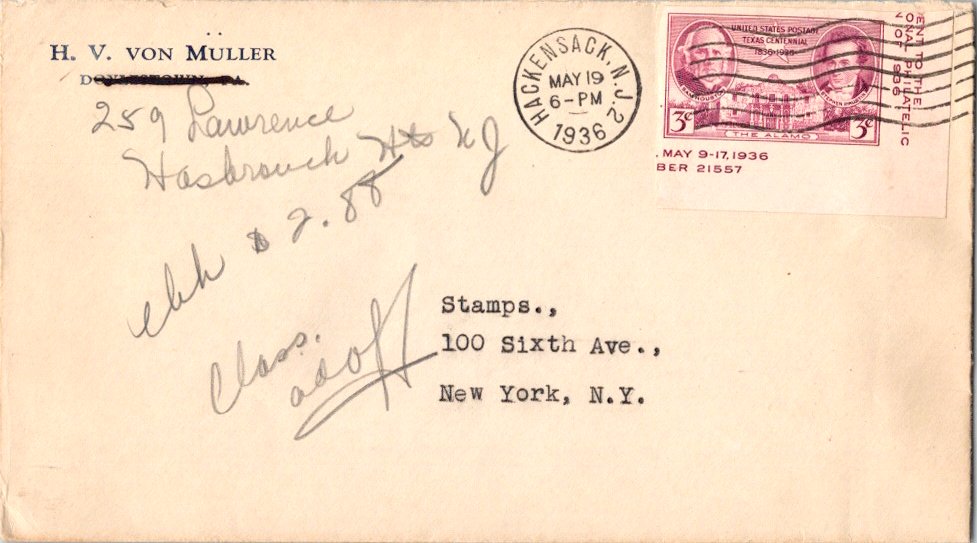 H. V. VON MÜLLER
259 Lawrence
Hasbrouck Hts NJ
$2.88
Class.
HACKENSACK, N.J. 2
MAY 19
6-PM
1936
UNITED STATES POSTAGE
TEXAS CENTENNIAL
1836·1936
SAM HOUSTON
STEPHEN
3¢ 3¢
THE ALAMO
ENT TO THE
ONAL PHILATELIC
N OF 1936
. MAY 9-17, 1936
BER 21557
Stamps.,
100 Sixth Ave.,
New York, N.Y.